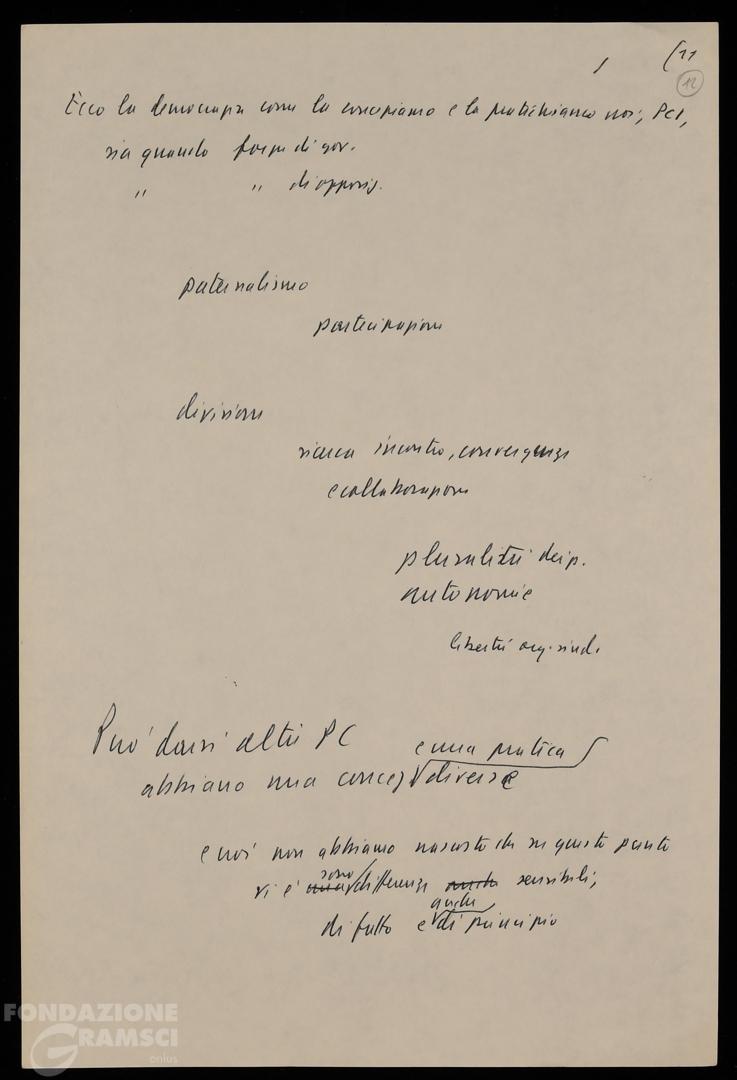 1 (11
12
Ecco la democrazia come la concepiamo e la pratichiamo noi, PCI,
sia quando forza di gov.
" " di opposiz.
paternalismo
partecipazione
divisione
ricerca incontro, convergenze
e collaborazione
pluralità dei p.
autonomie
libertà org. sind.
Può darsi altri PC
e una pratica
abbiano una concez diverse
e noi non abbiamo nascosto che su questo punto
sono
vi è differenze anche sensibili,
anche
di fatto e di principio
FONDAZIONE
GRAMSCI
onlus